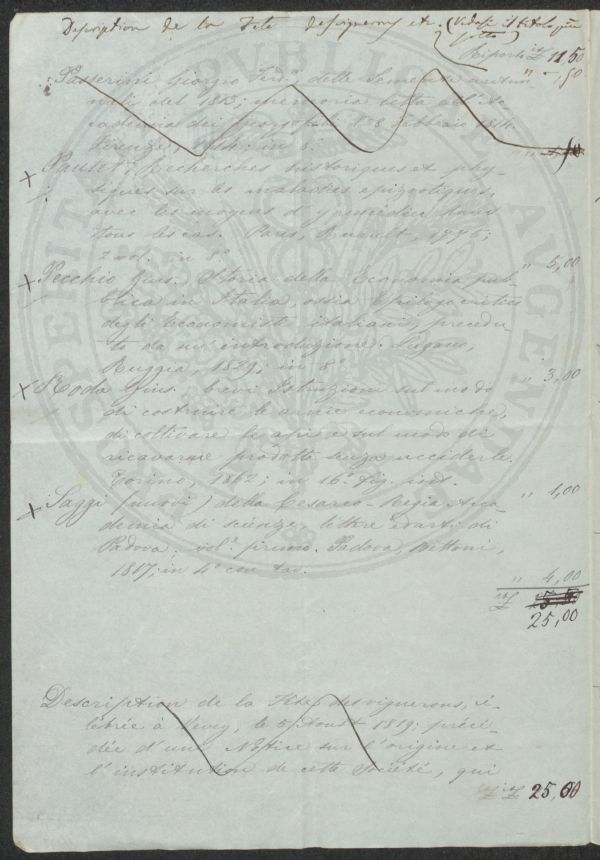 Description de la Fête des vignerons etc. (Vedasi il titolo qui
sotto)
Riporti it£ 11,50
Passerini Giorgio Ferd.° delle Semente autun- " -,50
nali del 1813; memoria letta all'Ac-
cademia dei Georgofili 1°8 febbraio 1814.
Firenze, 1814: in 8.
Paulet, Recherches historiques et phy-
siques sur les maladies epizootiques,
avec les moyens d'y remédier dans
tous les cas. Paris, Ruault, 1775;
2 vol. in 8° " 5,00
Pecchio Gius. Storia della Economia pub-
blica in Italia, ossia Epilogo critico
degli Economisti italiani, precedu-
to da un' introduzione. Lugano,
Ruggia, 1829, in 8° " 3,00
Roda Gius. Brevi Istruzioni sul modo
di costruire le arnie economiche,
di coltivare le api e sul modo di
ricavarne prodotto senza ucciderle.
Torino, 1862; in 16. fig. " 1,00
Saggi (nuovi) della Cesareo-Regia Acca-
demia di scienze, lettere ed arti di
Padova; vol.° primo. Padova, Bettoni,
1817; in 4° con tav.
" 4,00
it£
25,00
Description de la Fête des vignerons, cé-
lebrée à Vevey, le 5 Aoust 1819; précé-
dée d'une Notice sur l'origine et
l'institution de cette Société, qui
it£ 25,00